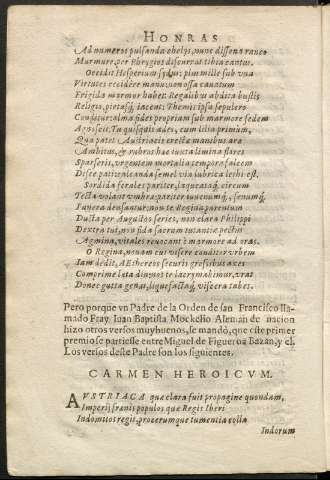 HONRAS
Ad numeros pulsanda chelys, nunc dissona rauco
Murmure, per Phrygios discurrat tibia cantus.
Occidit Hesperium sydus: plus mille sub vna
Virtutes cecidere manu: non ossa cauatum
Frigida marmor habet: Regalibus abdita bustis
Religio, pietasq, iacent: Themis ipsa sepulcro
alma fides propriam sub marmore sedem
Agnoscit. Tu quisquis ades, cum lilia primum,
Qua patet Austriacis erecta manibus ara
Ambitus, & rubros hac iuxta limina flores
Sparseris, vrgentem mortalia tempora falcem
Disce pati, calcanda semel via lubrica lethi est.
Sordida ferales pariter, laqueataq, circum
Tecta volant vmbra: pariter iuuenumq, senumq,
Funera densantur, non te Regina parentum
Ducta per Augustos series, non clara Philippi
Dextra tui, non fida sacrum tutantia pectus
Agmina, vitales reuocant è marmore ad oras.
O Regina, nouam cui visere conditor vrbem
Iam dedit, AEthereos securis gressibus axes
Comprime lata diu: nos te lacrymabimur, vrat
Donec gutta genas, liquefactaq, viscera tabes.
Pero porque vn Padre de la Orden de san Francisco lla-
mado Fray Iuan Baptista Mockelio Aleman de nacion
hizo otros versos muy buenos, se mandò, que este primer
premio se partiesse entre Miguel de Figueroa Bazan, y el.
Los versos deste Padre son los siguientes.
CARMEN HEROICVM.
AVSTRIACA que clara fuit propagine quondam,
Imperij franis populos que Regis Iberi
Indomitos regit, procerumque tumentia colla
Indorum